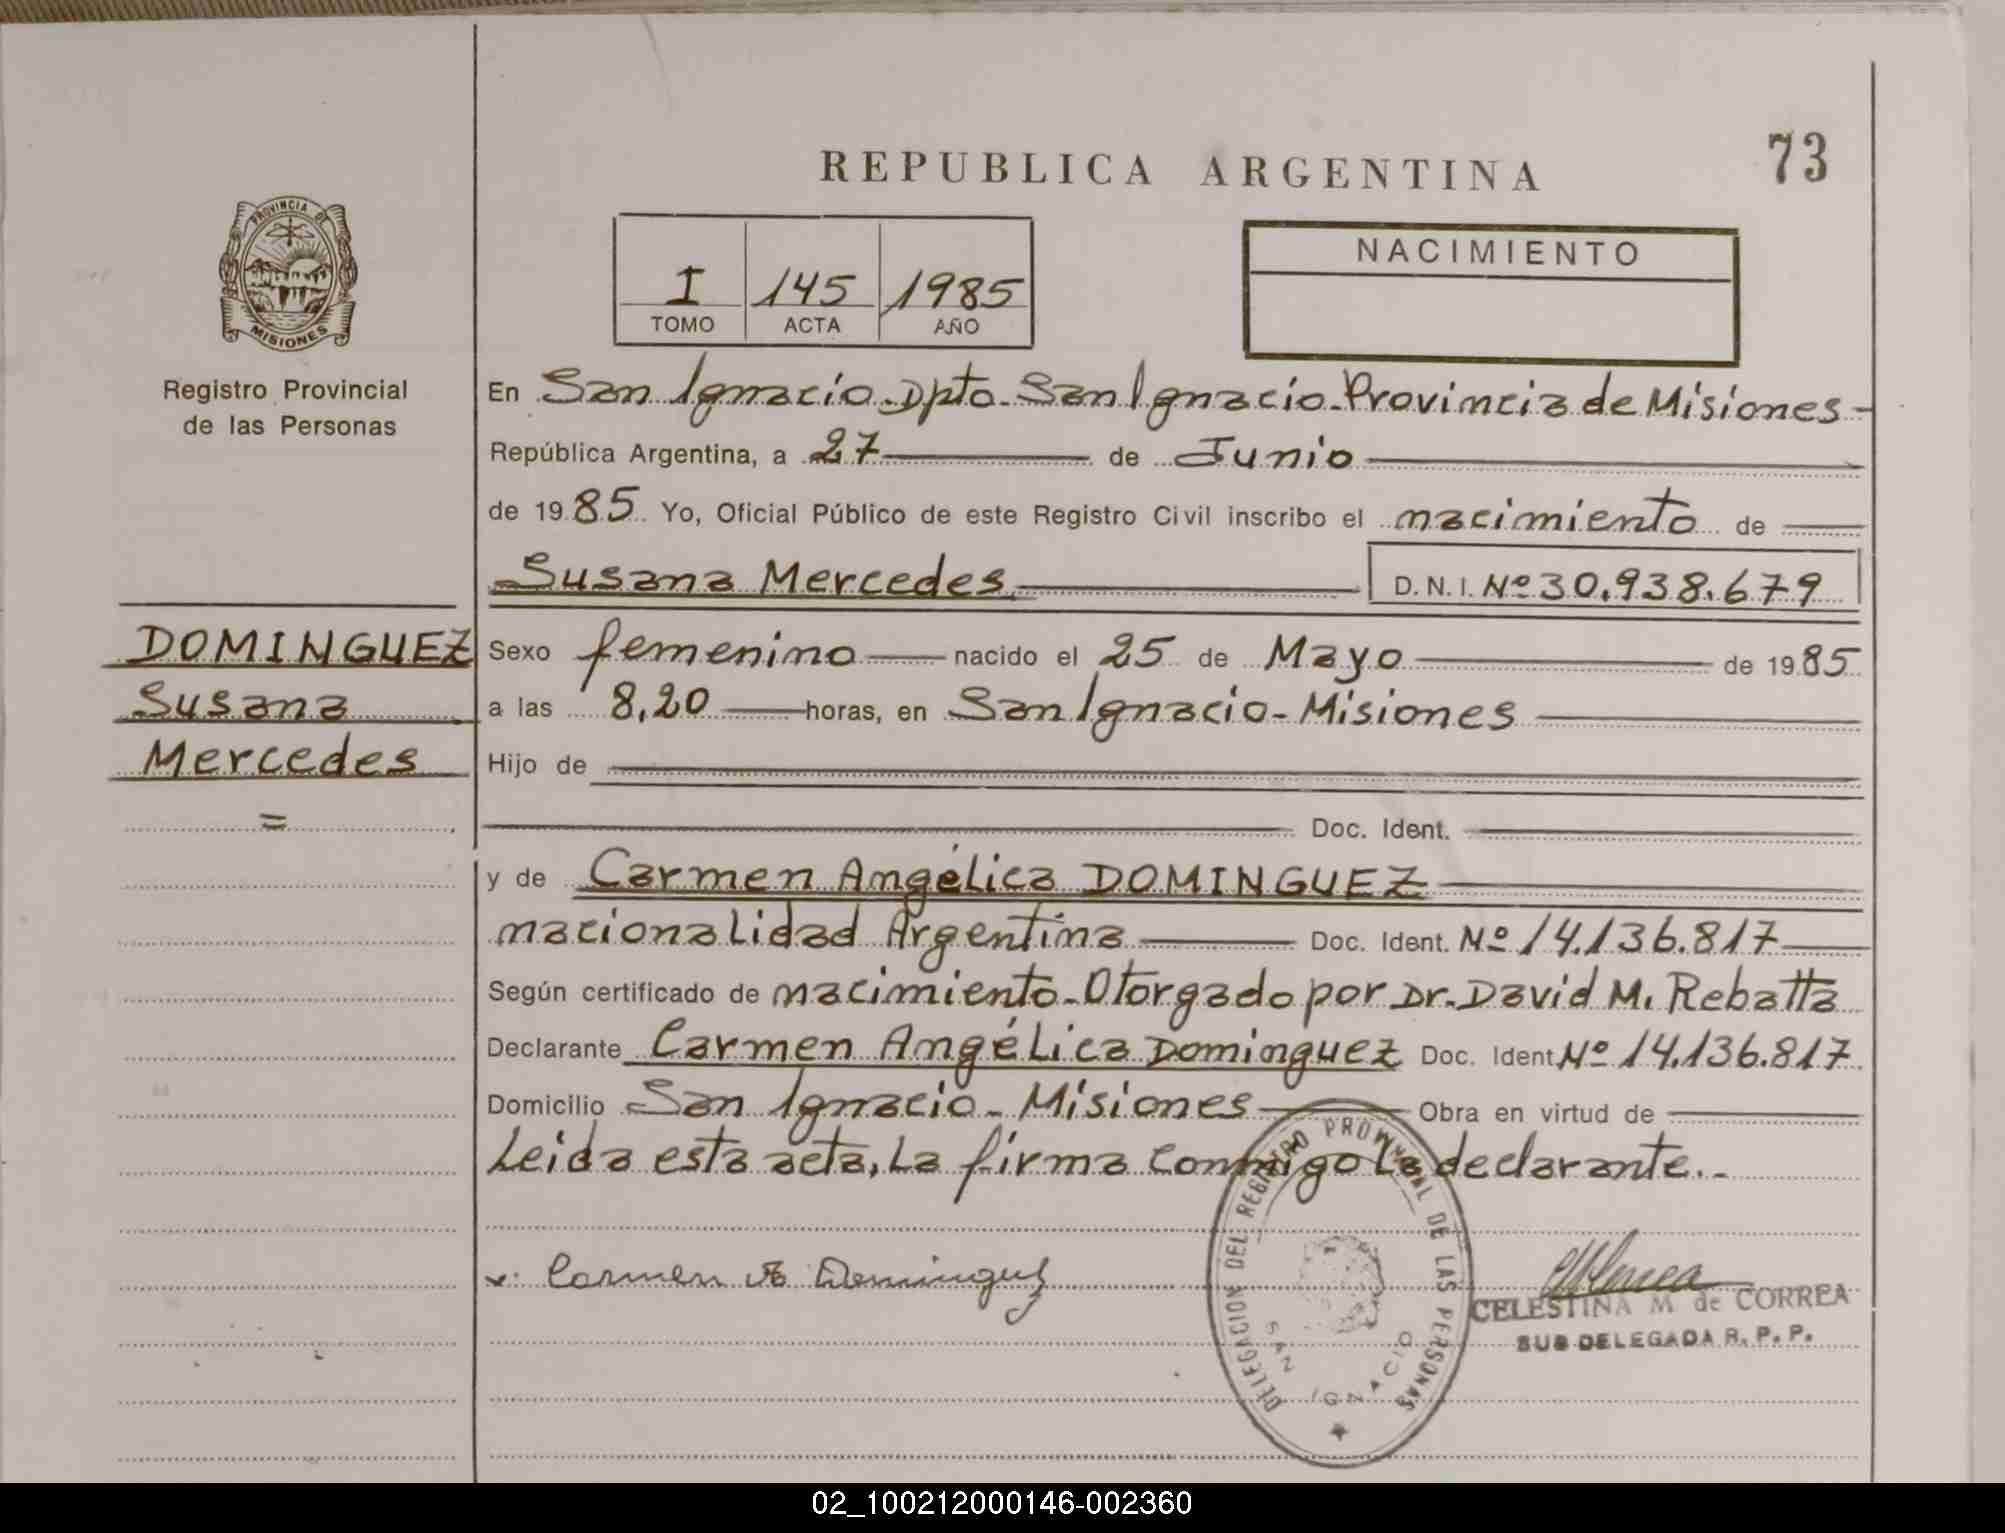 73
REPUBLICA ARGENTINA
PROVINCIA DE
MISIONES
Registro Provincial
de las Personas
I 145 1985
TOMO ACTA AÑO
NACIMIENTO
En San Ignacio - Dpto - San Ignacio - Provincia de Misiones -
República Argentina, a 27 de Junio
de 1985 Yo, Oficial Público de este Registro Civil inscribo el nacimiento de
Susana Mercedes D.N.I. Nº 30.938.679
DOMINGUEZ
Susana
Mercedes
=
Sexo femenino nacido el 25 de Mayo de 1985
a las 8,20 horas, en San Ignacio - Misiones
Hijo de
Doc. Ident.
y de Carmen Angélica DOMINGUEZ
nacionalidad Argentina Doc. Ident. Nº 14.136.817
Según certificado de nacimiento - Otorgado por Dr. David M. Rebatta
Declarante Carmen Angélica Dominguez Doc. Ident. Nº 14.136.817
Domicilio San Ignacio - Misiones Obra en virtud de
Leida esta acta, la firma conmigo la declarante..
Carmen A Dominguez
DELEGACION DEL REGISTRO PROVINCIAL DE LAS PERSONAS
SAN IGNACIO
CELESTINA M de CORREA
SUB DELEGADA R. P. P.
02_100212000146-002360